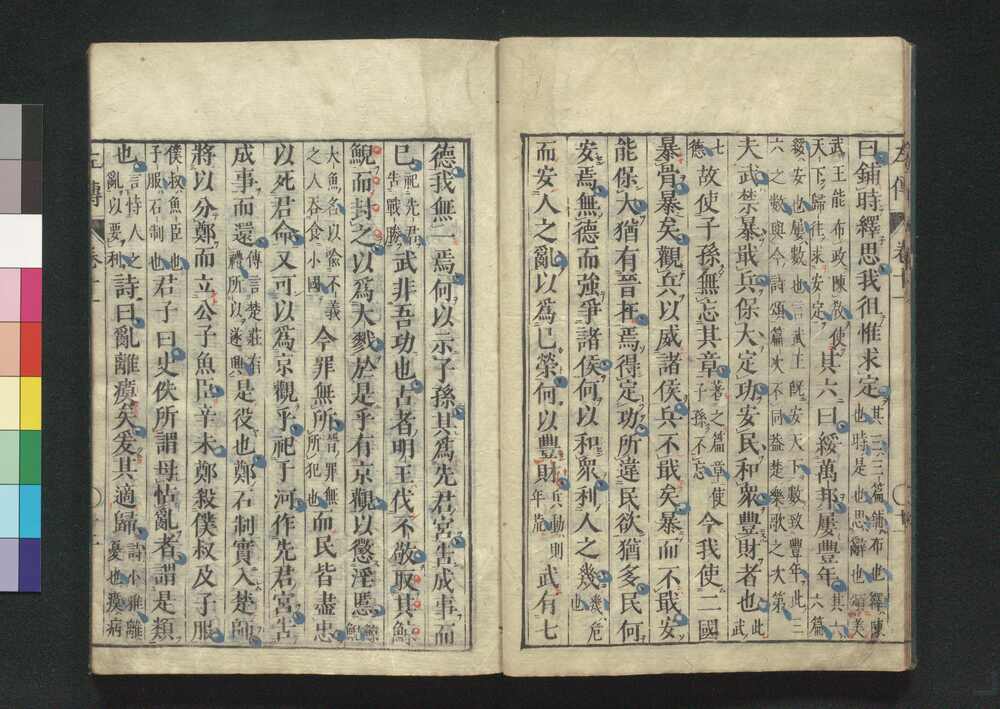 左傳 卷十一
曰鋪時繹思我徂惟求定其三三篇鋪布也繹陳也時是也思辭也頌美
武王能布政陳教使天下歸往求安定其六曰綏萬邦屢豐年其六六篇
綏安也屢數也言武王既安天下數致豐年此三六之數與今詩頌篇次不同蓋楚樂歌之次第
夫武禁暴戢兵保大定功安民和衆豐財者也此武
七德故使子孫無忘其章著之篇章使子孫不忘今我使二國
暴骨暴矣觀兵以威諸侯兵不戢矣暴而不戢安
能保大猶有晉在焉得定功所違民欲猶多民何
安焉無德而強爭諸侯何以和衆利人之幾幾危也
而安人之亂以爲己榮何以豐財兵動則年荒武有七
德我無一焉何以示子孫其爲先君宮告成事而
已祀先君告戰勝武非吾功也古者明王伐不敬取其鯨
鯢而封之以爲大戮於是乎有京觀以懲淫慝鯨鯢
大魚名以喻不義之人吞食小國今罪無所晉罪無所犯也而民皆盡忠
以死君命又可以爲京觀乎祀于河作先君宮告
成事而還傳言楚莊有禮所以遂興是役也鄭石制實入楚師
將以分鄭而立公子魚臣辛未鄭殺僕叔及子服
僕叔魚臣也子服石制也君子曰史佚所謂毋怙亂者謂是類
也言恃人之亂以要利詩曰亂離瘼矣爰其適歸詩小雅離憂也瘼病